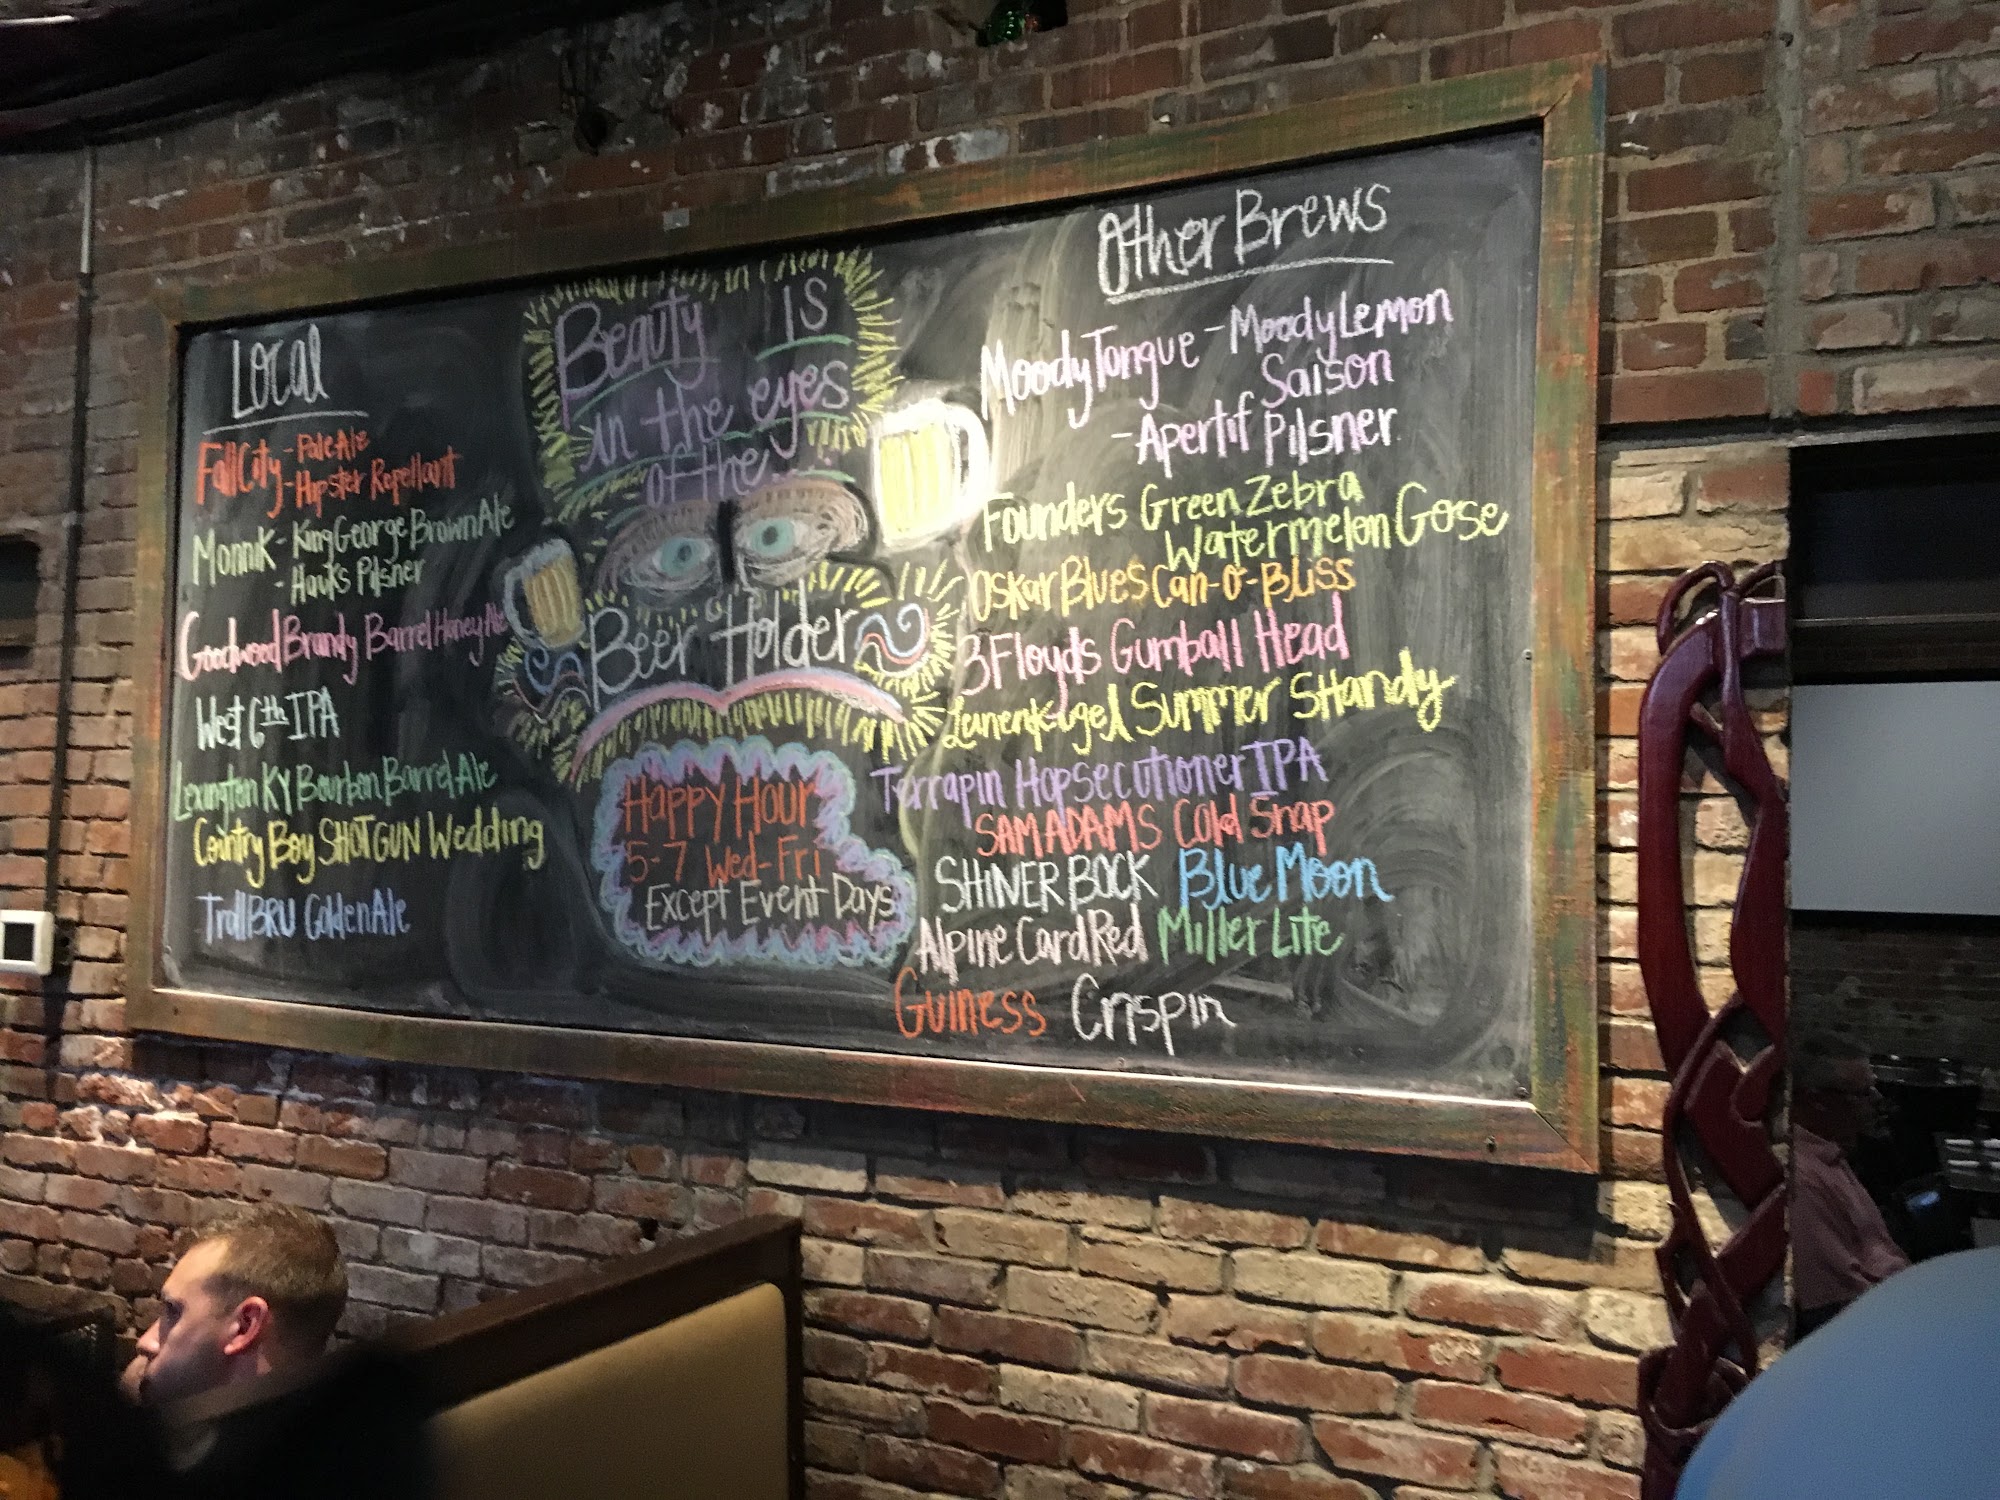 Local
Fall City - Pale Ale
- Hipster Repellant
Monnik - King George Brown Ale
- Hauks Pilsner
Goodwood Brandy Barrel Honey Ale
West 6th IPA
Lexington KY Bourbon Barrel Ale
Country Boy SHOTGUN Wedding
TrollBRU Golden Ale
Beauty IS
in the eyes
of the
Beer Holder
Happy Hour
5-7 Wed-Fri
Except Event Days
Other Brews
Moody Tongue - Moody Lemon
Saison
- Apertif Pilsner
Founders Green Zebra
Watermelon Gose
Oskar Blues Can-O-Bliss
3 Floyds Gumball Head
Leinenkugel Summer SHandy
Terrapin Hopsecutioner IPA
SAM ADAMS Cold Snap
SHINER BOCK Blue Moon
Alpine Card Red Miller Lite
Guiness Crispin